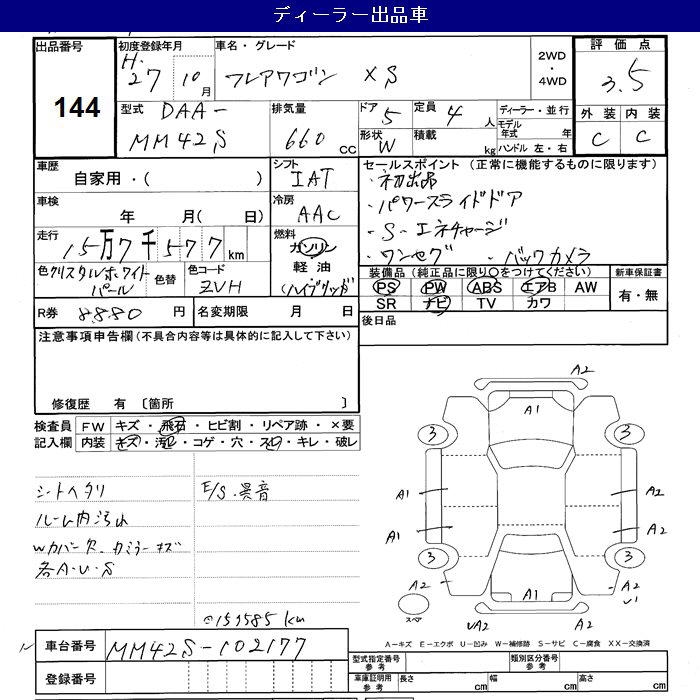 ディーラー出品車
出品番号
144
初度登録年月
H.
27 10月
車名・グレード
フレアワゴン XS
2WD
・
4WD
評価点
3.5
型式 DAA-
MM42S
排気量
660 CC
ドア 5
定員 4 人
形状 W
積載 kg
ディーラー・並行
モデル年式 年
ハンドル 左・右
外装 内装
C C
車歴
自家用・( )
シフト
IAT
セールスポイント (正常に機能するものに限ります)
・初出品
・パワースライドドア
・S-エネチャージ
・ワンセグ ・バックカメラ
車検
年 月( 日)
冷房
AAC
走行
15万7千577km
燃料
ガソリン
軽油
(ハイブリッド)
色 クリスタルホワイトパール
色替
色コード
ZVH
装備品 (純正品に限り○をつけてください)
PS PW ABS エアB AW
SR ナビ TV カワ
新車保証書
有・無
R券 8880 円
名変期限 月 日
後日品
注意事項申告欄 (不具合内容等は具体的に記入して下さい)
修復歴 有 〔箇所 〕
検査員記入欄
FW キズ・飛石・ヒビ割・リペア跡・×要
内装 キズ・汚れ・コゲ・穴・スレ・キレ・破レ
シートヘタリ
E/S.異音
ルーム内汚れ
Wカバー欠.カミラーキズ
各A・U・S
@157585 km
A2
A1
3 3
A1 A2
A1 A2
3 3
A2 A1 A2
U1
スペア
UA2 A2
A-キズ E-エクボ U-凹み W-補修跡 S-サビ C-腐食 XX-交換済
車台番号 MM42S-102177
登録番号
型式指定番号 参考
類別区分番号 参考
車庫証明用 参考
長さ cm
幅 cm
高さ cm